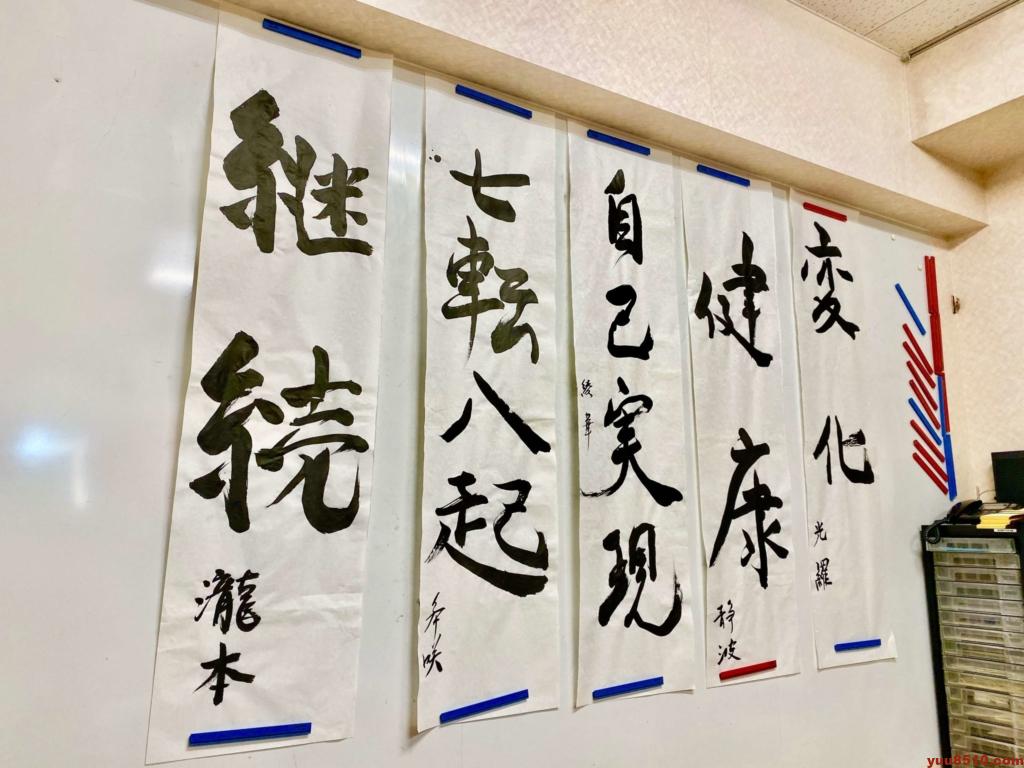 変化
光羅
健康
静波
自己実現
綾華
七転八起
咲
継続
瀧本
yuu8510.com